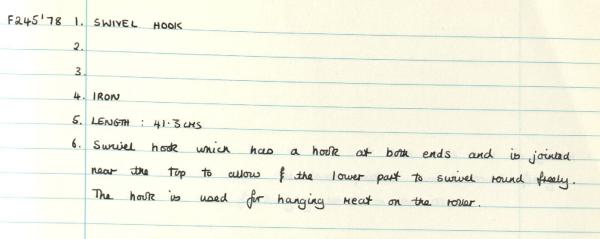 F245'78 1. SWIVEL HOOK
2.
3.
4. IRON
5. LENGTH : 41.3 CMS
6. Swivel hook which has a hook at both ends and is jointed
near the top to allow the lower part to swivel round freely.
The hook is used for hanging meat on the